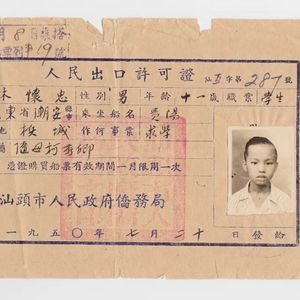 月8日乘搭
19
人民出口許可證 汕五字第287號
林懷忠 性別 男 年齡 十一歲 職業 學生
東省潮安縣 乘坐船名 貴陽
地 檳城 作何事業 求學
憑證購買船票有效期間一月限用一次
汕頭市人民政府僑務局
一九五〇年七月二十日發給